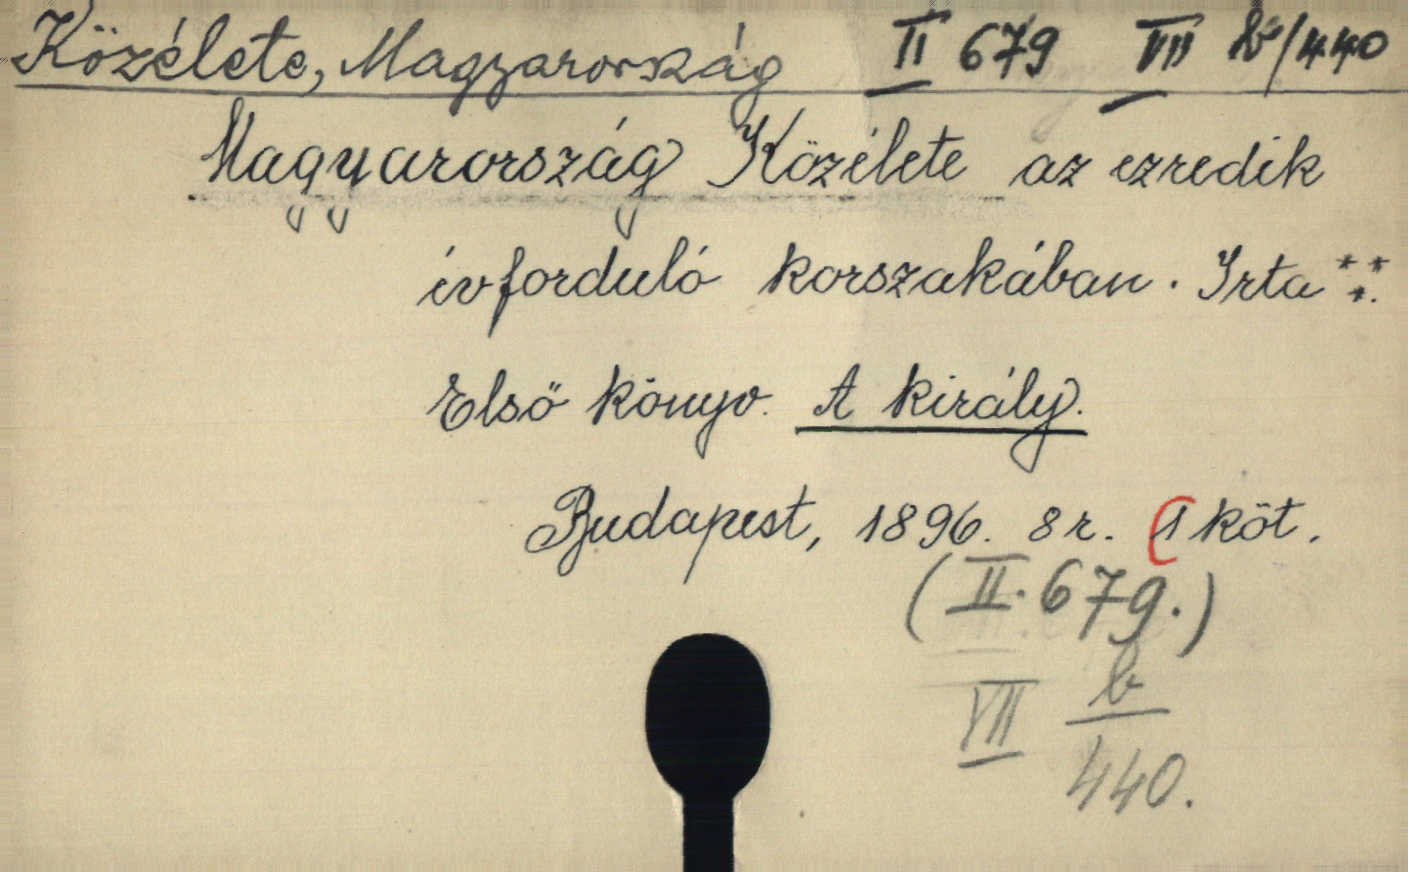 Közélete, Magyarország II 679 VII b/440
Magyarország Közélete az ezredik
évforduló korszakában. Irta ***.
Első könyv. A király.
Budapest, 1896. 8 r. 1 köt.
(II. 679.)
VII b/440.